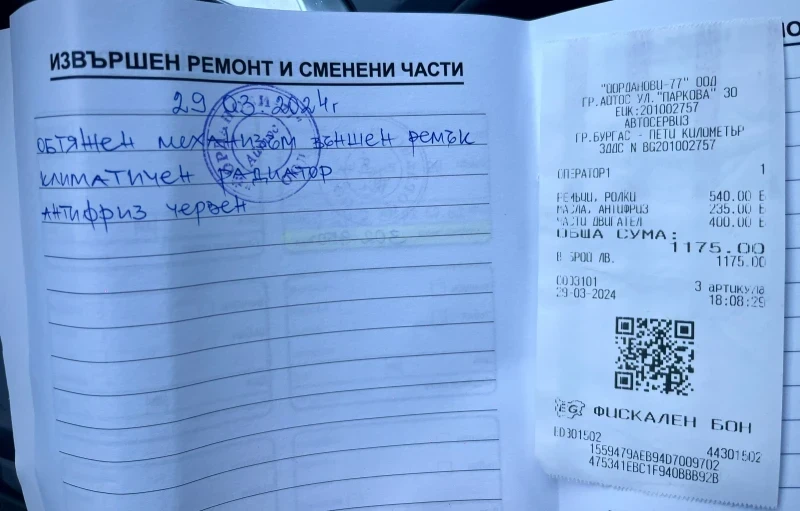 ИЗВЪРШЕН РЕМОНТ И СМЕНЕНИ ЧАСТИ
29.03.2024г
ОБТЯЖЕН МЕХАНИЗЪМ ВЪНШЕН РЕМЪК
КЛИМАТИЧЕН РАДИАТОР
АНТИФРИЗ ЧЕРВЕН
"ЙОРДАНОВИ-77" ООД
ГР.АЙТОС УЛ."ПАРКОВА" 30
ЕИК:201002757
АВТОСЕРВИЗ
ГР.БУРГАС - ПЕТИ КИЛОМЕТЪР
ЗДДС N BG201002757
ОПЕРАТОР1 1
РЕМЪЦИ, РОЛКИ 540.00 Б
МАСЛА, АНТИФРИЗ 235.00 Б
ЧАСТИ ДВИГАТЕЛ 400.00 Б
ОБЩА СУМА: 1175.00
В БРОЙ ЛВ. 1175.00
0003101 3 артикула
29-03-2024 18:08:29
ФИСКАЛЕН БОН
ED301502 44301502
1559479AEB94D7009702
475341EBC1F940BBB92B